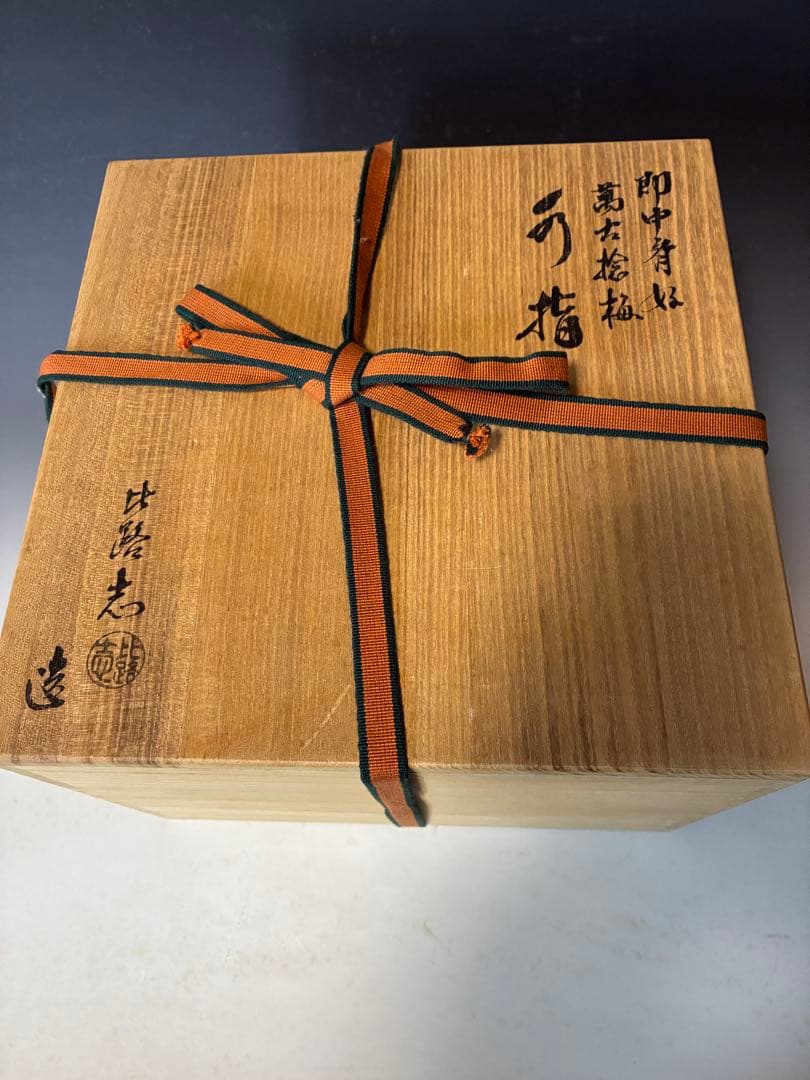 即中斎好
萬古捻梅
水指
比路志
造